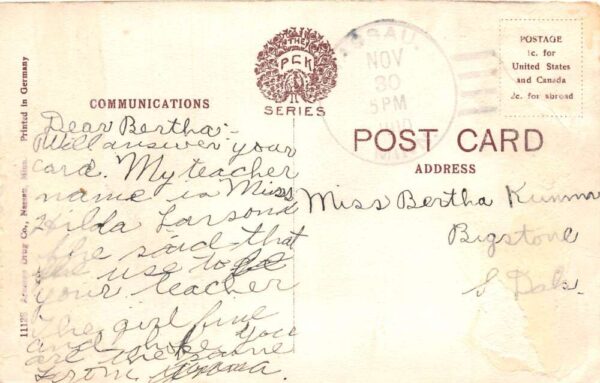 THE
PCK
SERIES
NASSAU,
NOV
30
5PM
MINN
POSTAGE
1c. for
United States
and Canada
2c. for abroad
COMMUNICATIONS
POST CARD
ADDRESS
Printed in Germany
Drug Co., Nassau, Minn.
Dear Bertha:-
Will answer your
card. My teacher
name is Miss
Hilda Larsond
She said that
she use to be
your teacher
The girl fine
and hope you
are the same
from
Miss Bertha
Bigstone
S Dak.